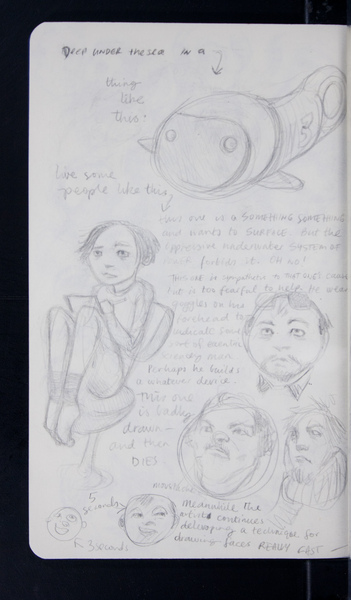 DEEP UNDER the sea IN a
thing
like
this:
live some
people like this,
this one is a SOMETHING SOMETHING
and wants to SURFACE. But the
oppressive underwater SYSTEM OF
forbids it. OH NO!
This one is sympathetic to
but is too fearful to help. He wears
goggles on his
forehead to
indicate some
sort of
man.
Perhaps he builds
a whatever device.
This one
is badly
drawn –
and then
DIES.
5
seconds
3 seconds
Meanwhile the
artist continues
developing a technique for
drawing faces REALLY FAST